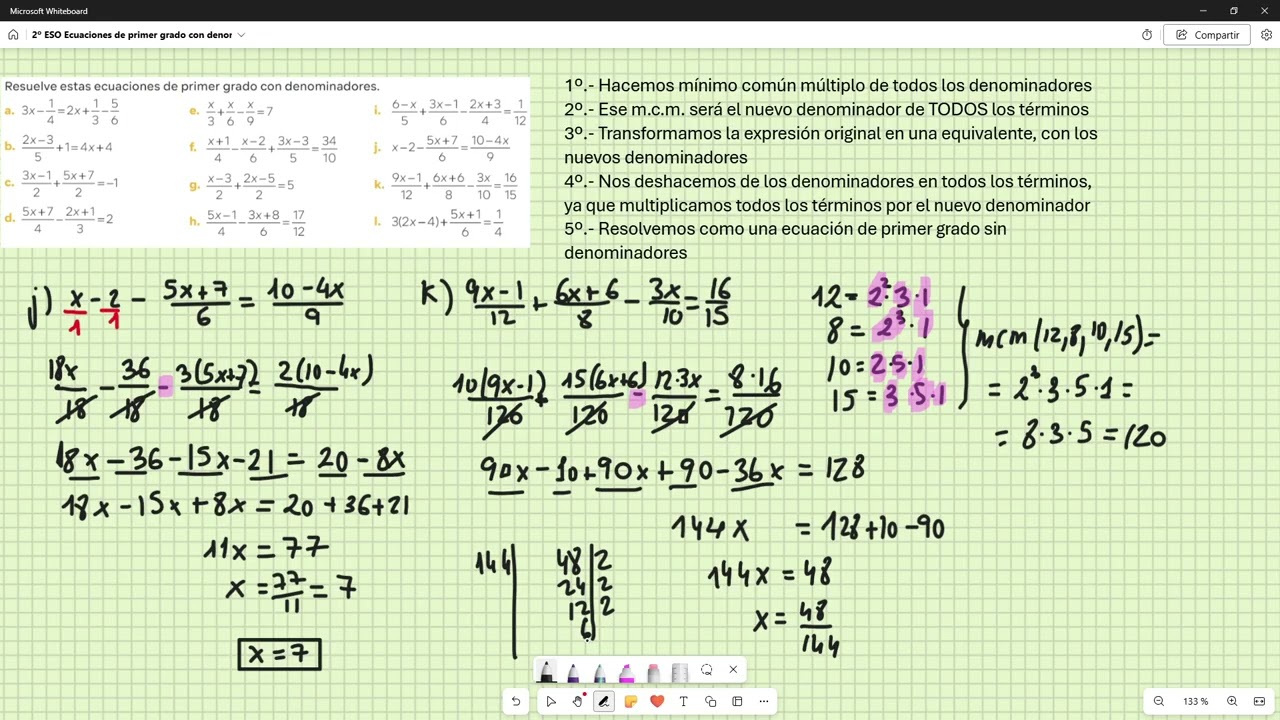 Microsoft Whiteboard
2º ESO Ecuaciones de primer grado con denor
Compartir
Resuelve estas ecuaciones de primer grado con denominadores.
a. 3x-1/4=2x+1/3-5/6
e. x/3+x/6-x/9=7
i. (6-x)/5+(3x-1)/6-(2x+3)/4=1/12
b. (2x-3)/5+1=4x+4
f. (x+1)/4-(x-2)/6+(3x-3)/5=34/10
j. x-2-(5x+7)/6=(10-4x)/9
c. (3x-1)/2+(5x+7)/2=-1
g. (x-3)/2+(2x-5)/2=5
k. (9x-1)/12+(6x+6)/8-3x/10=16/15
d. (5x+7)/4-(2x+1)/3=2
h. (5x-1)/4-(3x+8)/6=17/12
l. 3(2x-4)+(5x+1)/6=1/4
1º.- Hacemos mínimo común múltiplo de todos los denominadores
2º.- Ese m.c.m. será el nuevo denominador de TODOS los términos
3º.- Transformamos la expresión original en una equivalente, con los
nuevos denominadores
4º.- Nos deshacemos de los denominadores en todos los términos,
ya que multiplicamos todos los términos por el nuevo denominador
5º.- Resolvemos como una ecuación de primer grado sin
denominadores
j) x/1 - 2/1 - (5x+7)/6 = (10-4x)/9
18x/18 - 36/18 - 3(5x+7)/18 = 2(10-4x)/18
18x - 36 - 15x - 21 = 20 - 8x
18x - 15x + 8x = 20 + 36 + 21
11x = 77
x = 77/11 = 7
x = 7
k) (9x-1)/12 + (6x+6)/8 - 3x/10 = 16/15
10(9x-1)/120 + 15(6x+6)/120 - 12·3x/120 = 8·16/120
90x - 10 + 90x + 90 - 36x = 128
144x = 128 + 10 - 90
144x = 48
x = 48/144
144
48 2
24 2
12 2
6
12 = 2²·3·1
8 = 2³·1
10 = 2·5·1
15 = 3·5·1
mcm (12,8,10,15) =
= 2³·3·5·1 =
= 8·3·5 = 120
133 %